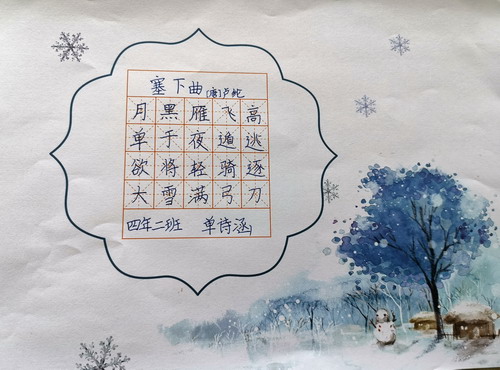 塞下曲 [唐]卢纶
月黑雁飞高
单于夜遁逃
欲将轻骑逐
大雪满弓刀
四年二班 单诗涵